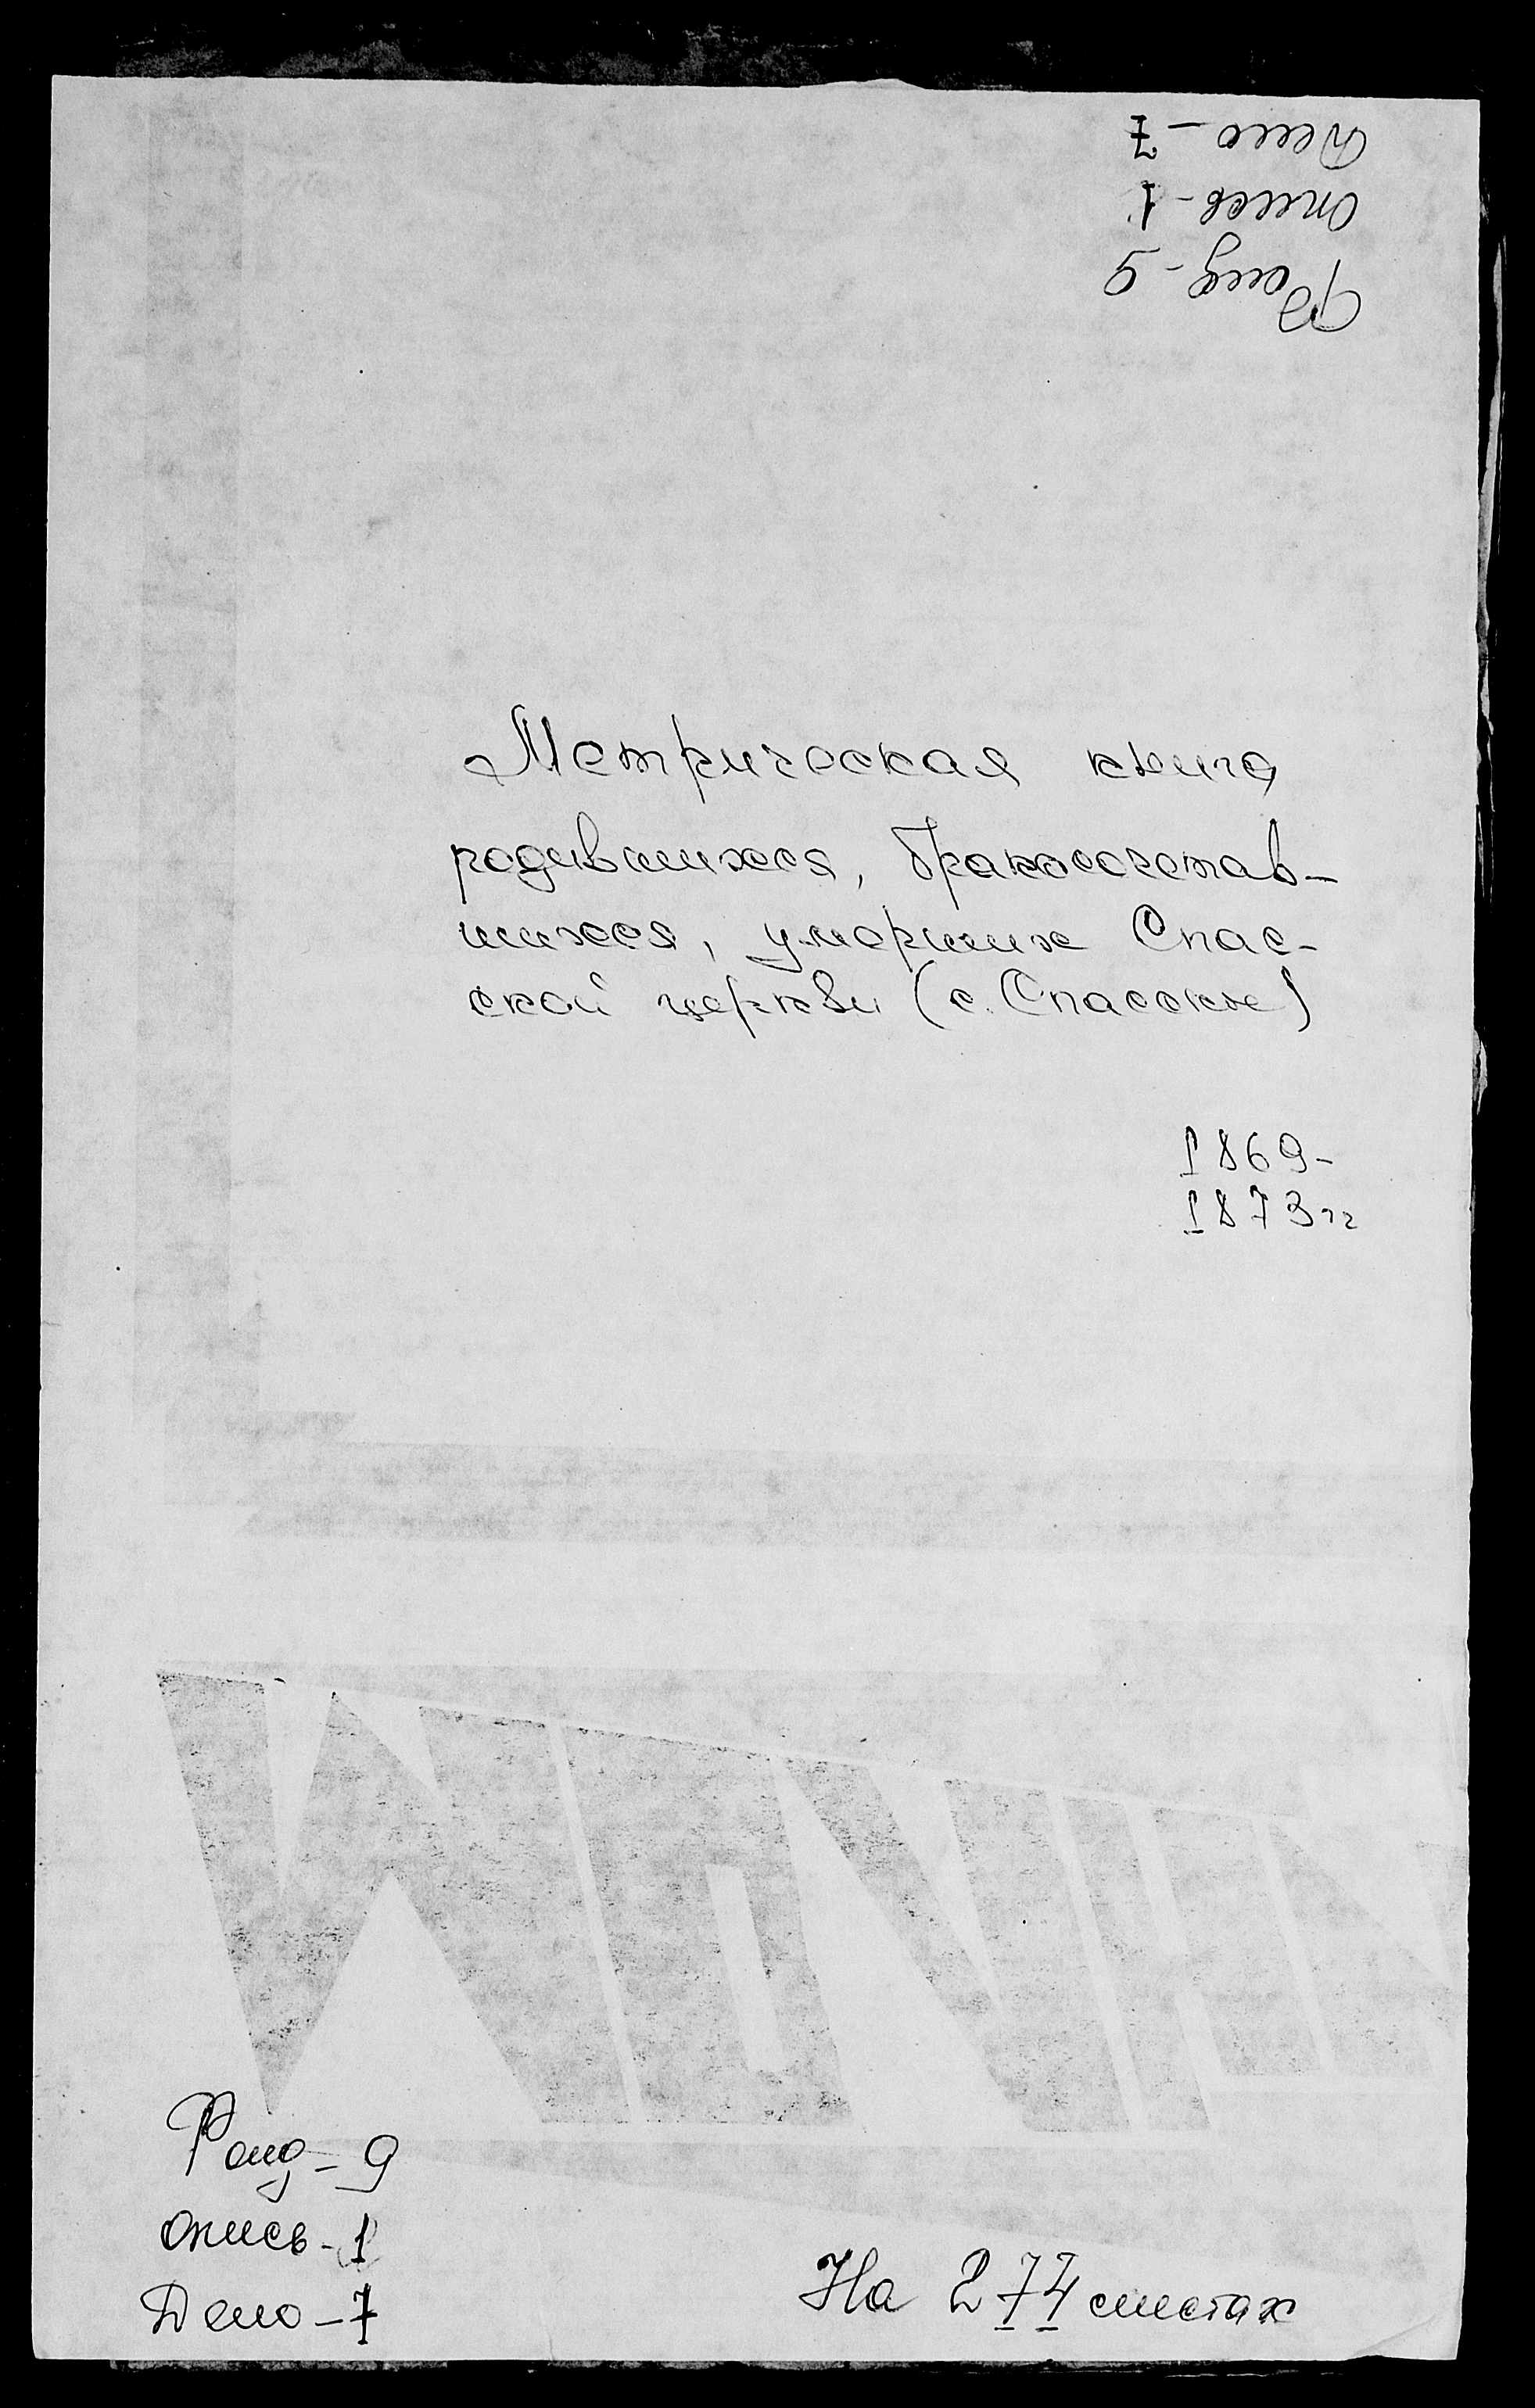 Дело - 7
опись - 1
Фонд - 9
Метрическая книга
родившихся, бракосочетав-
шихся, умерших Спас-
ской церкви (с. Спасское)
1869-
1873гг
Фонд - 9
опись - 1
Дело - 7
На 274 листах